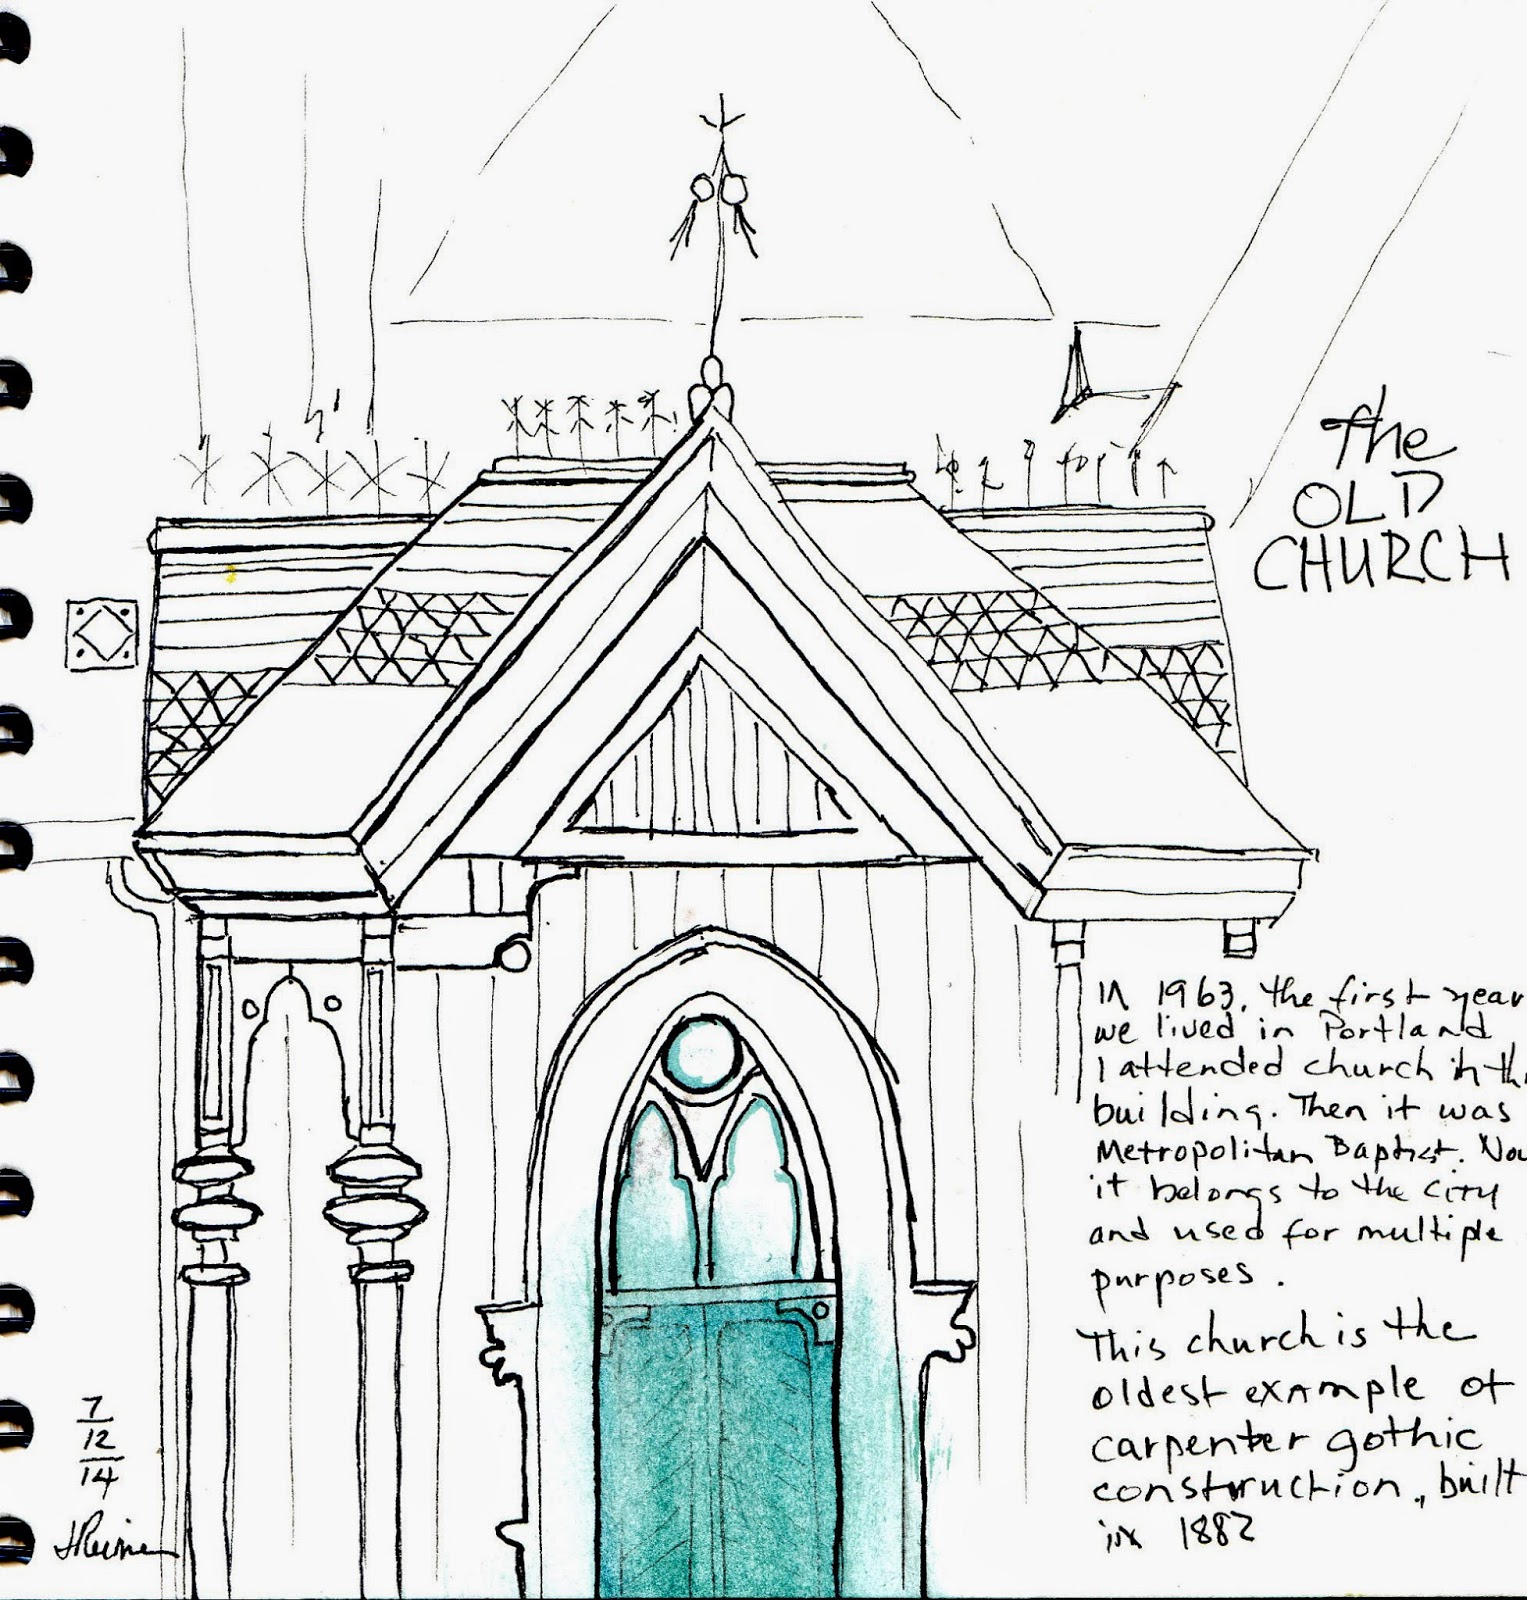 the
OLD
CHURCH
IN 1963, the first year
we lived in Portland
I attended church in thi
building. Then it was
Metropolitan Baptist. Now
it belongs to the city
and used for multiple
purposes.
This church is the
oldest example of
carpenter gothic
construction, built
in 1882
7
12
14